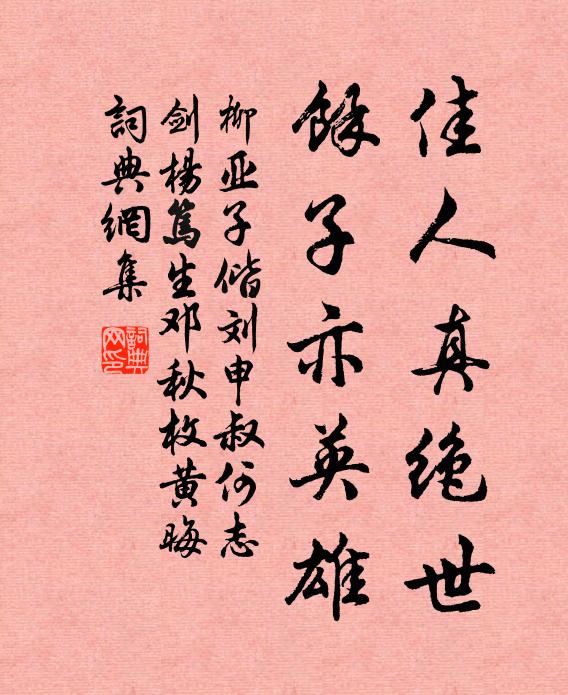 佳人真绝世
餘子亦英雄
柳亚子偕刘申叔何志
剑楊篤生邓秋枚黄晦
詞典網集
詞典网印